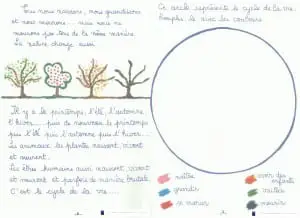 Nous nous naissons, nous grandissons
et nous mourrons... mais nous ne
mourons pas tous de la même manière.
La nature change aussi.
Il y a le printemps, l'été, l'automne
l'hiver... puis de nouveau le printemps
puis l'été puis l'automne puis l'hiver...
Les animaux, les plantes naissent, vivent
et meurent.
Les êtres humains aussi naissent, vivent
et meurent et parfois de manière brutale.
C'est le cycle de la vie....
Ce cercle représente le cycle de la vie.
Remplis le avec les couleurs
naître
grandir
se marier
avoir des
enfants
vieillir
mourir